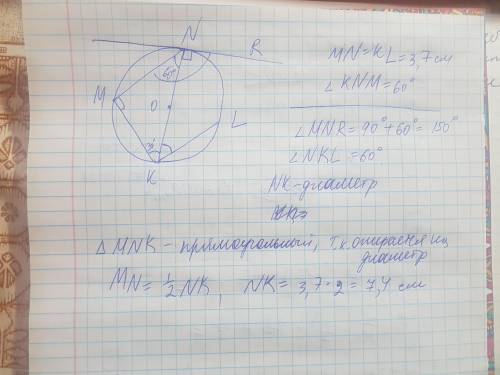 N
R
M
60°
O
L
K
MN=KL=3,7 см
∠KNM=60°
∠MNR=90°+60°=150°
∠NKL=60°
NK-диаметр
△ MNK - прямоугольный, т.к. опирается на
диаметр
MN= 1/2 NK, NK= 3,7·2=7,4 см